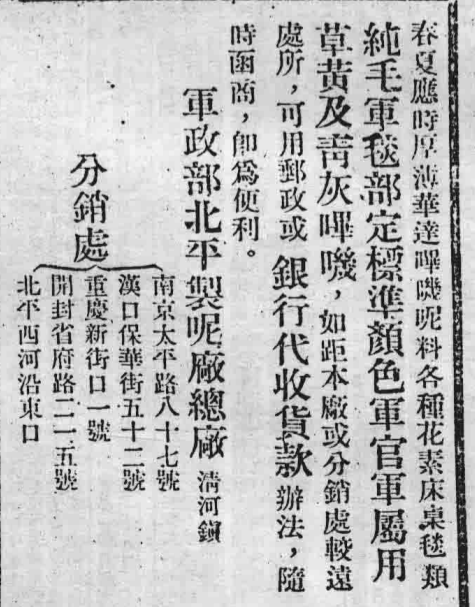 春夏應時厚薄華達嗶嘰呢料各種花素床桌毯類
純毛軍毯部定標準顏色軍官軍屬用
草黃及靑灰嗶嘰，如距本廠或分銷處較遠
處所，可用郵政或銀行代收貨款辦法，隨
時函商，卽爲便利。
軍政部北平製呢廠總廠淸河鎭
分銷處
南京太平路八十七號
漢口保華街五十二號
重慶新街口一號
開封省府路二一五號
北平西河沿東口